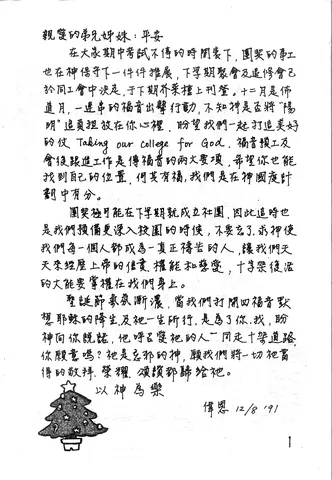 親愛的弟兄姊妹：平安
在大家期中考試不得的時間表下，團契的事工
也在神保守下一件件推展，下學期聚會及退修會已
於同工會中決定，于下期芥菜種上刊登。十一月是佈
道月，一連串的福音出擊行動，不知神是否將"陽
明"這負担放在你心裡，盼望我們一起打這美好
的仗，Taking our college for God. 福音預工及
會後跟進工作是傳福音的兩大要項，希望你也能
找到自己的位置，何其有福，我們是在神國度計
劃中有分。
團契極可能在下學期就成立社團，因此這時也
是我們預備更深入校園的時候，不要忘了求神使
我們每一個人都成為一真正禱告的人，讓我們天
天來經歷上帝的信實、權能和慈愛，十字架復活
的大能要掌權在我們身上。
聖誕節氣氛漸濃，當我們打開四福音默
想耶穌的降生及祂一生所行，是為了你、我，盼
神向你說話，他呼召愛祂的人一同走十架道路，
你願意嗎？祂是忌邪的神，願我們將一切祂當
得的敬拜、榮耀、頌讚都歸給祂。
以神為樂
偉恩 12/8 '91
1